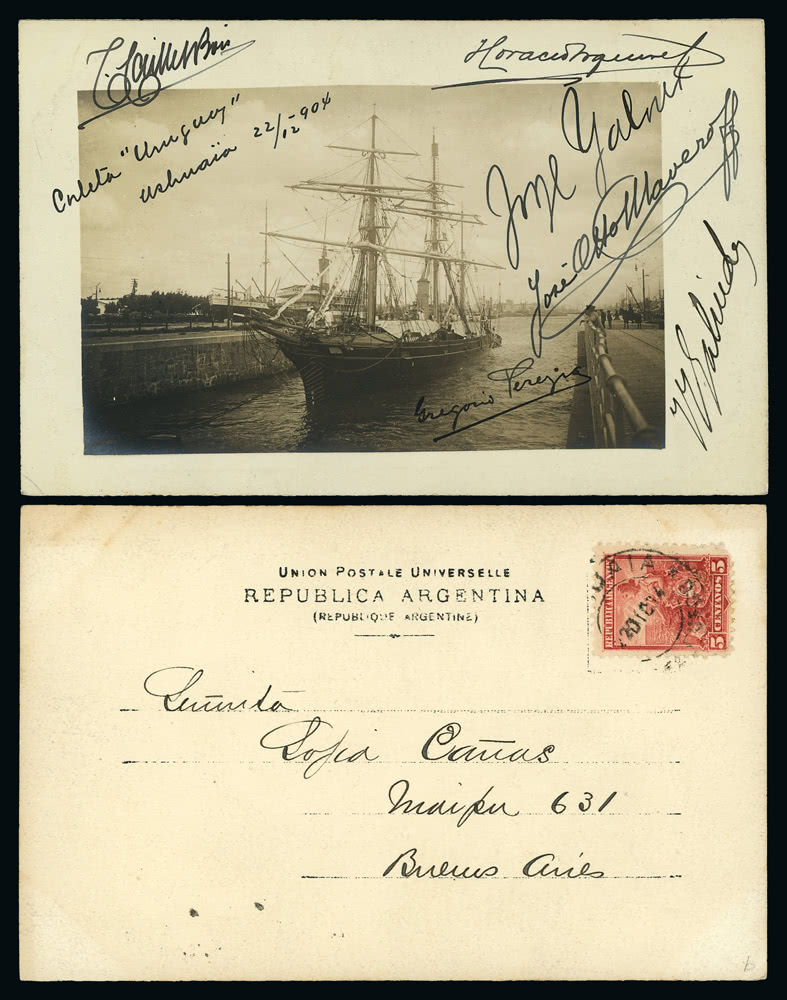 Horacio
Corbeta "Uruguay"
Ushuaïa 22/12-904
Jorge Yalour
José Otto Maveroff
Gregorio Pereyra
UNION POSTALE UNIVERSELLE
REPUBLICA ARGENTINA
(REPUBLIQUE ARGENTINE)
REPUBLICA ARGENTINA
5 CENTAVOS 5
Señorita
Sofia Cañas
Maipu 631
Buenos Aires